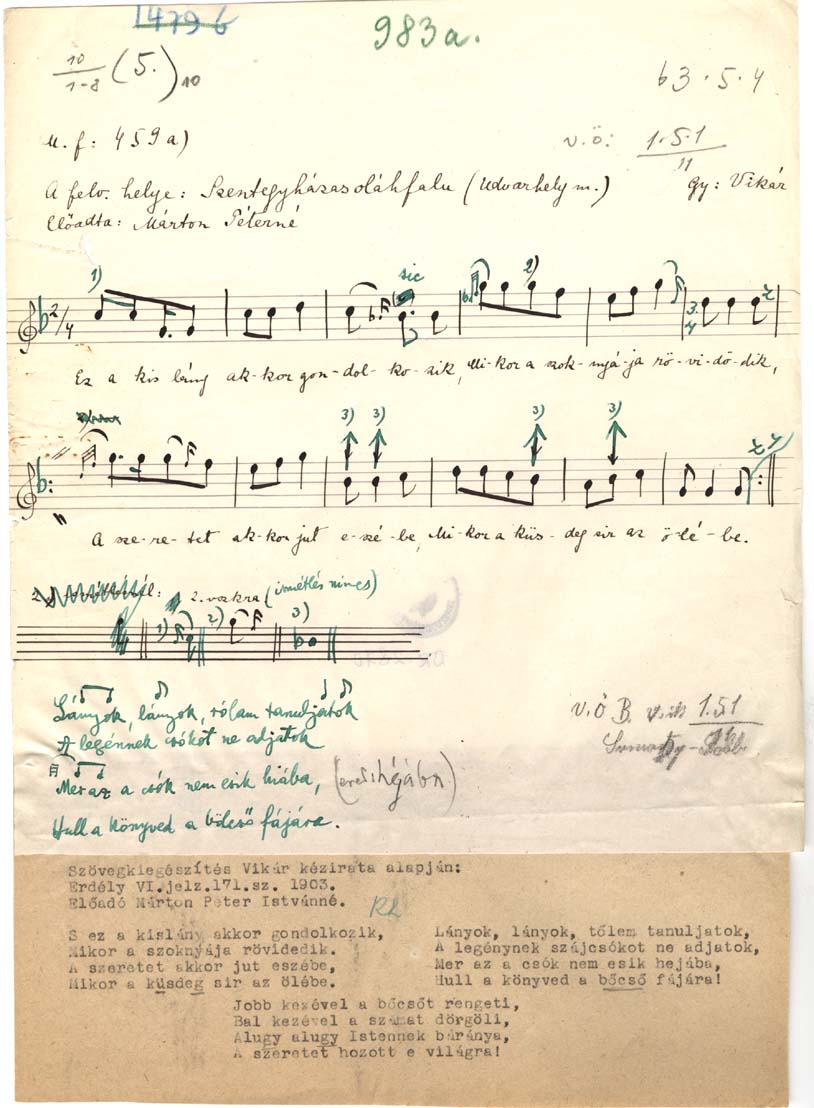 1479 b
983a.
10
1-8 (5.) 10
b3.5.4
M. f: 459a)
v.ö: 1.5.1
11
A felv. helye: Szentegyházasoláhfalu (Udvarhely m.) Gy: Vikár
Előadta: Márton Péterné
1) sic 2)
2/4 3/4
Ez a kis lány ak-kor gon-dol-ko-zik, Mi-kor a szok-nyá-ja rö-vi-dö-dik,
3) 3) 3) 3)
A sze-re-tet ak-kor jut e-szé-be, Mi-kor a küs-deg sir az ö-lé-be.
2. vszkra (ismétlés nincs)
1) 2) 3)
Lányok, lányok, rólam tanuljatok
A legénnek csókot ne adjatok
Mer az a csók nem esik hiába,
Hull a könyved a bölcső fájára.
v.ö B. 1.5.1
Szövegkiegészítés Vikár kézirata alapján:
Erdély VI.jelz.171.sz. 1903.
Előadó Márton Péter Istvánné.
S ez a kislány akkor gondolkozik,
Mikor a szoknyája rövidedik.
A szeretet akkor jut eszébe,
Mikor a küsdeg sir az ölébe.
Lányok, lányok, tőlem tanuljatok,
A legénynek szájcsókot ne adjatok,
Mer az a csók nem esik hejába,
Hull a könyved a bőcső fájára!
Jobb kezével a bőcsőt rengeti,
Bal kezével a számat dörgöli,
Alugy alugy Istennek báránya,
A szeretet hozott e világra!